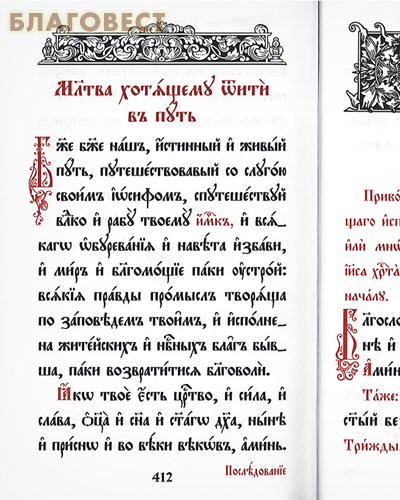 БЛАГОВЕСТ
Мл҃тва хотѧ́щему ѿитѝ
въ пꙋ́ть
Бж҃е бж҃е на́шъ, и҆́стинный и҆ живы́й
пꙋть, пꙋтеше́ствовавый со слꙋго́ю
свои́мъ і҆ѡ́сифомъ, спꙋтеше́ствꙋй
влⷣко и҆ рабꙋ̀ твоемꙋ̀ и҆́м҃къ, и҆ всѧ́-
кагѡ ѡ҆бꙋрева́нїѧ и҆ навѣ́та и҆зба́ви,
и҆ ми́ръ и҆ бл҃гомо́щїе па́ки ᲂу҆стро́й:
всѧ́кїѧ пра́вды про́мыслъ творѧ́ща
по за́повѣдемъ твои̑мъ, и҆ и҆спо́лне-
на жите́йскихъ и҆ нбⷭ҇ныхъ бла̑гъ бы́в-
ша, па́ки возврати́тисѧ бл҃говолѝ.
Ꙗ҆́кѡ твоѐ є҆́сть црⷭ҇тво, и҆ си́ла, и҆
сла́ва, ѻ҆ц҃а̀ и҆ сн҃а и҆ ст҃а́гѡ дх҃а, ны́нѣ
и҆ при́снѡ и҆ во вѣ́ки вѣкѡ́въ, а҆ми́нь.
412
Послѣ́дованїе
Приво́
щаго и҆сп
и҆лѝ мно́
і҆и҃са хрⷭ҇та̀
нача́лꙋ.
Благосло
нѣ и҆
А҆ми́н
Та́же:
ст҃ый без
Три́жды.